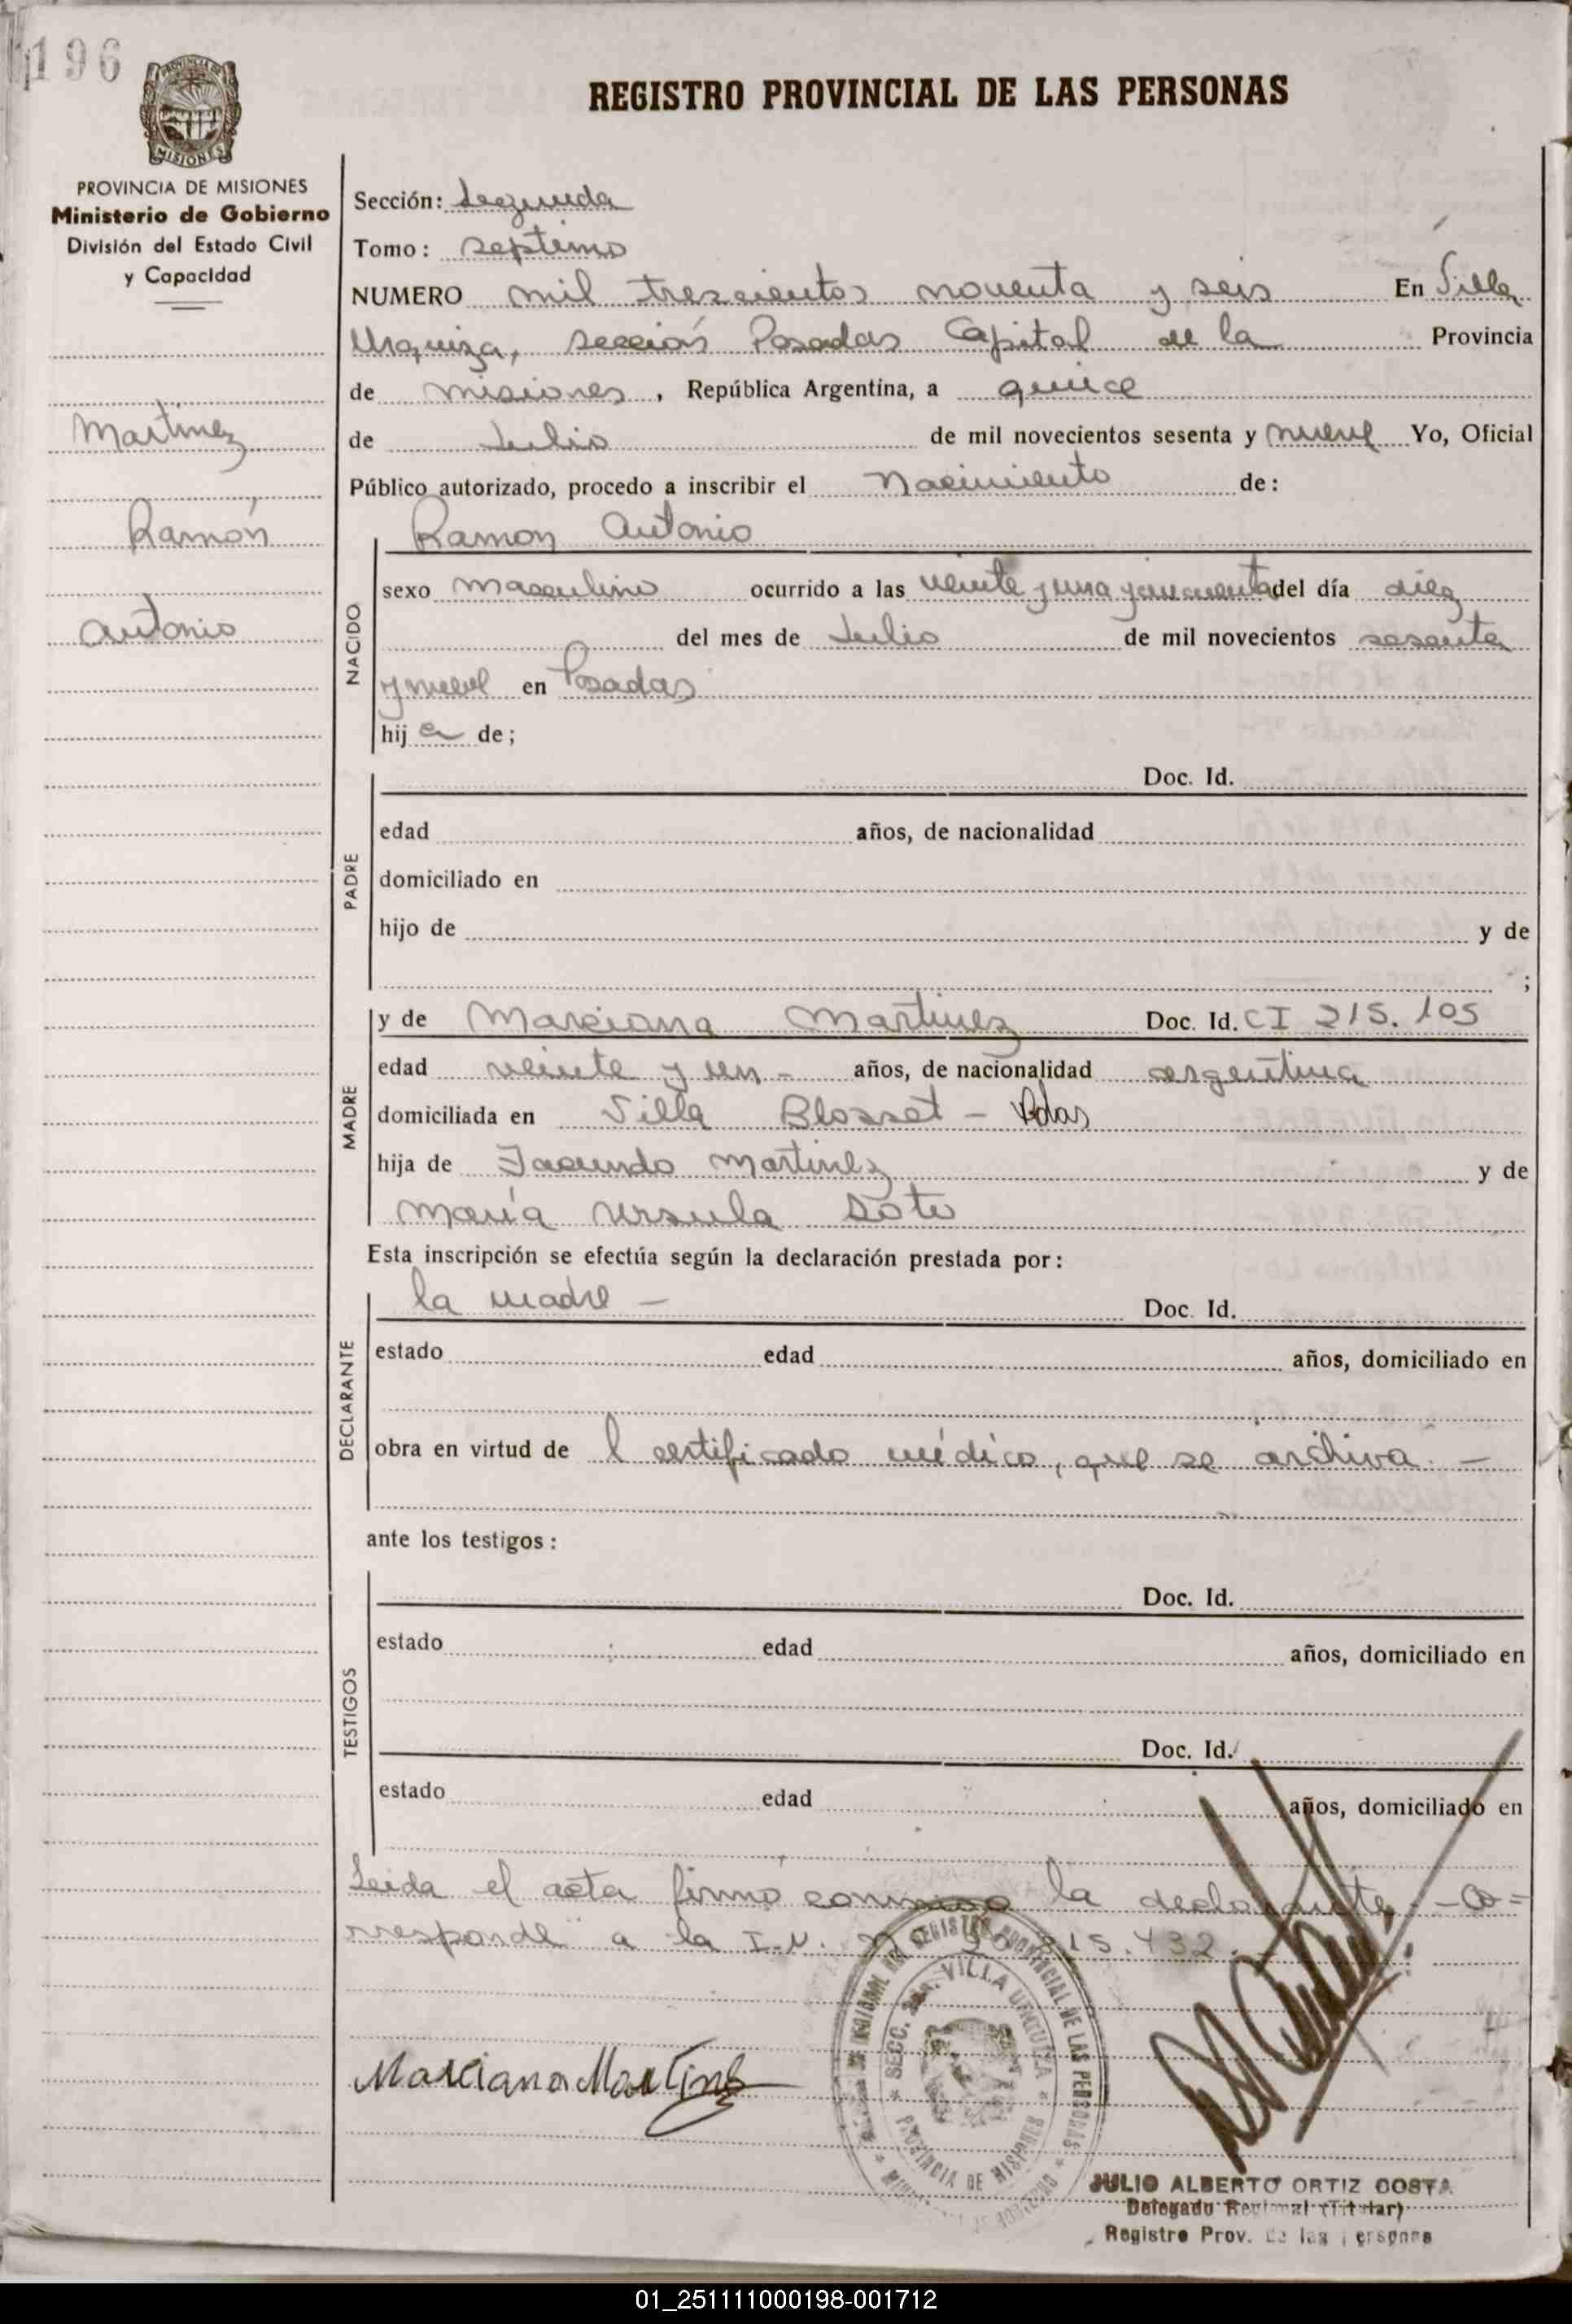 196
REGISTRO PROVINCIAL DE LAS PERSONAS
PROVINCIA DE MISIONES
Ministerio de Gobierno
División del Estado Civil
y Capacidad
Martinez
Ramón
Antonio
Sección: Segunda
Tomo: septimo
NUMERO mil trescientos noventa y seis En Villa
Urquiza, sección Posadas Capital de la Provincia
de misiones, República Argentina, a quince
de Julio de mil novecientos sesenta y nueve Yo, Oficial
Público autorizado, procedo a inscribir el Nacimiento de:
Ramon Antonio
NACIDO
sexo masculino ocurrido a las veinte y una y cincuenta del día diez
del mes de Julio de mil novecientos sesenta
y nueve en Posadas
hij de;
PADRE
Doc. Id.
edad años, de nacionalidad
domiciliado en
hijo de y de
;
MADRE
y de Marciana Martinez Doc. Id. CI 215.105
edad veinte y un - años, de nacionalidad argentina
domiciliada en Villa Blosset - Pdas
hija de Facundo Martinez y de
María Ursula Soto
Esta inscripción se efectúa según la declaración prestada por:
DECLARANTE
la madre - Doc. Id.
estado edad años, domiciliado en
obra en virtud de l certificado médico, que se archiva. -
ante los testigos:
TESTIGOS
Doc. Id.
estado edad años, domiciliado en
Doc. Id.
estado edad años, domiciliado en
Leida el acta firma conmigo la declarante. - Co=
rresponde a la I.N. 15.432.
Marciana Martinez
REGISTRO PROVINCIAL DE LAS PERSONAS
SECC. 2da. VILLA URQUIZA
PROVINCIA DE MISIONES
JULIO ALBERTO ORTIZ COSTA
Delegado Regional (Titular)
Registro Prov. de las Personas
01_251111000198-001712